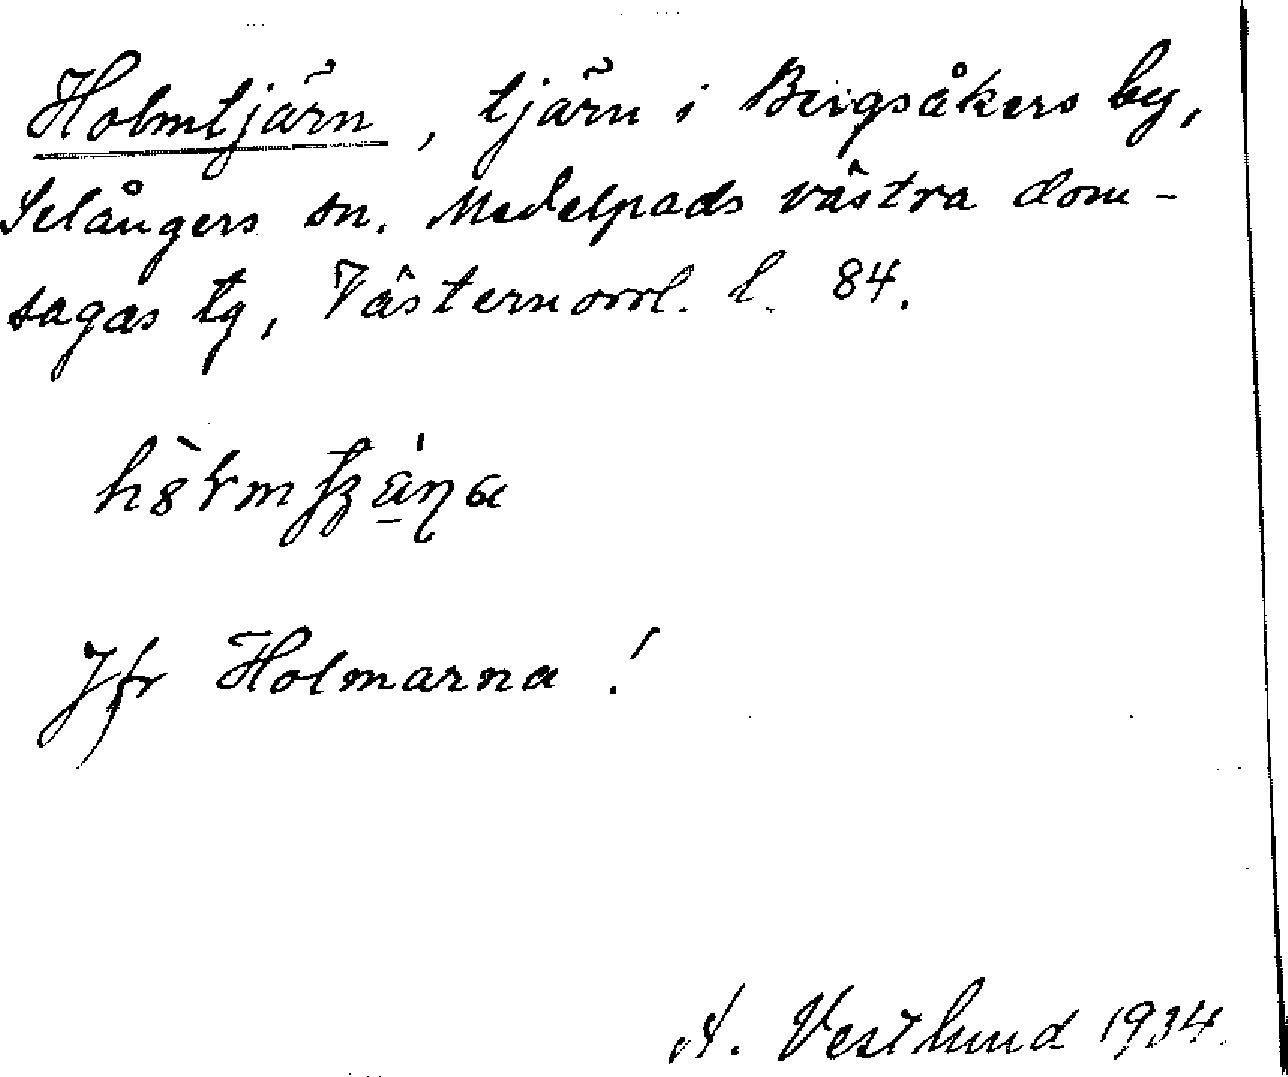 Holmtjärn, tjärn i Bergsåkers by,
Selångers sn. Medelpads västra dom-
sagas tg, Västernorrl. l. 84.
Jfr Holmarna!
A. Vestlund 1934.